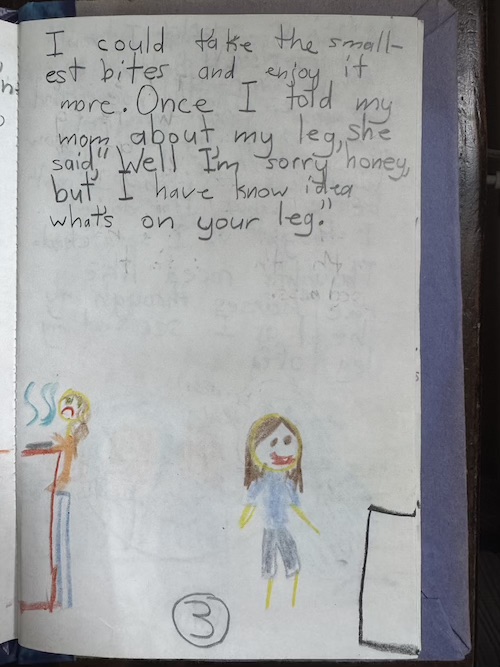 I could take the small-
est bites and enjoy it
more. Once I told my
mom about my leg, she
said," Well I'm sorry honey,
but I have know idea
what's on your leg."
3